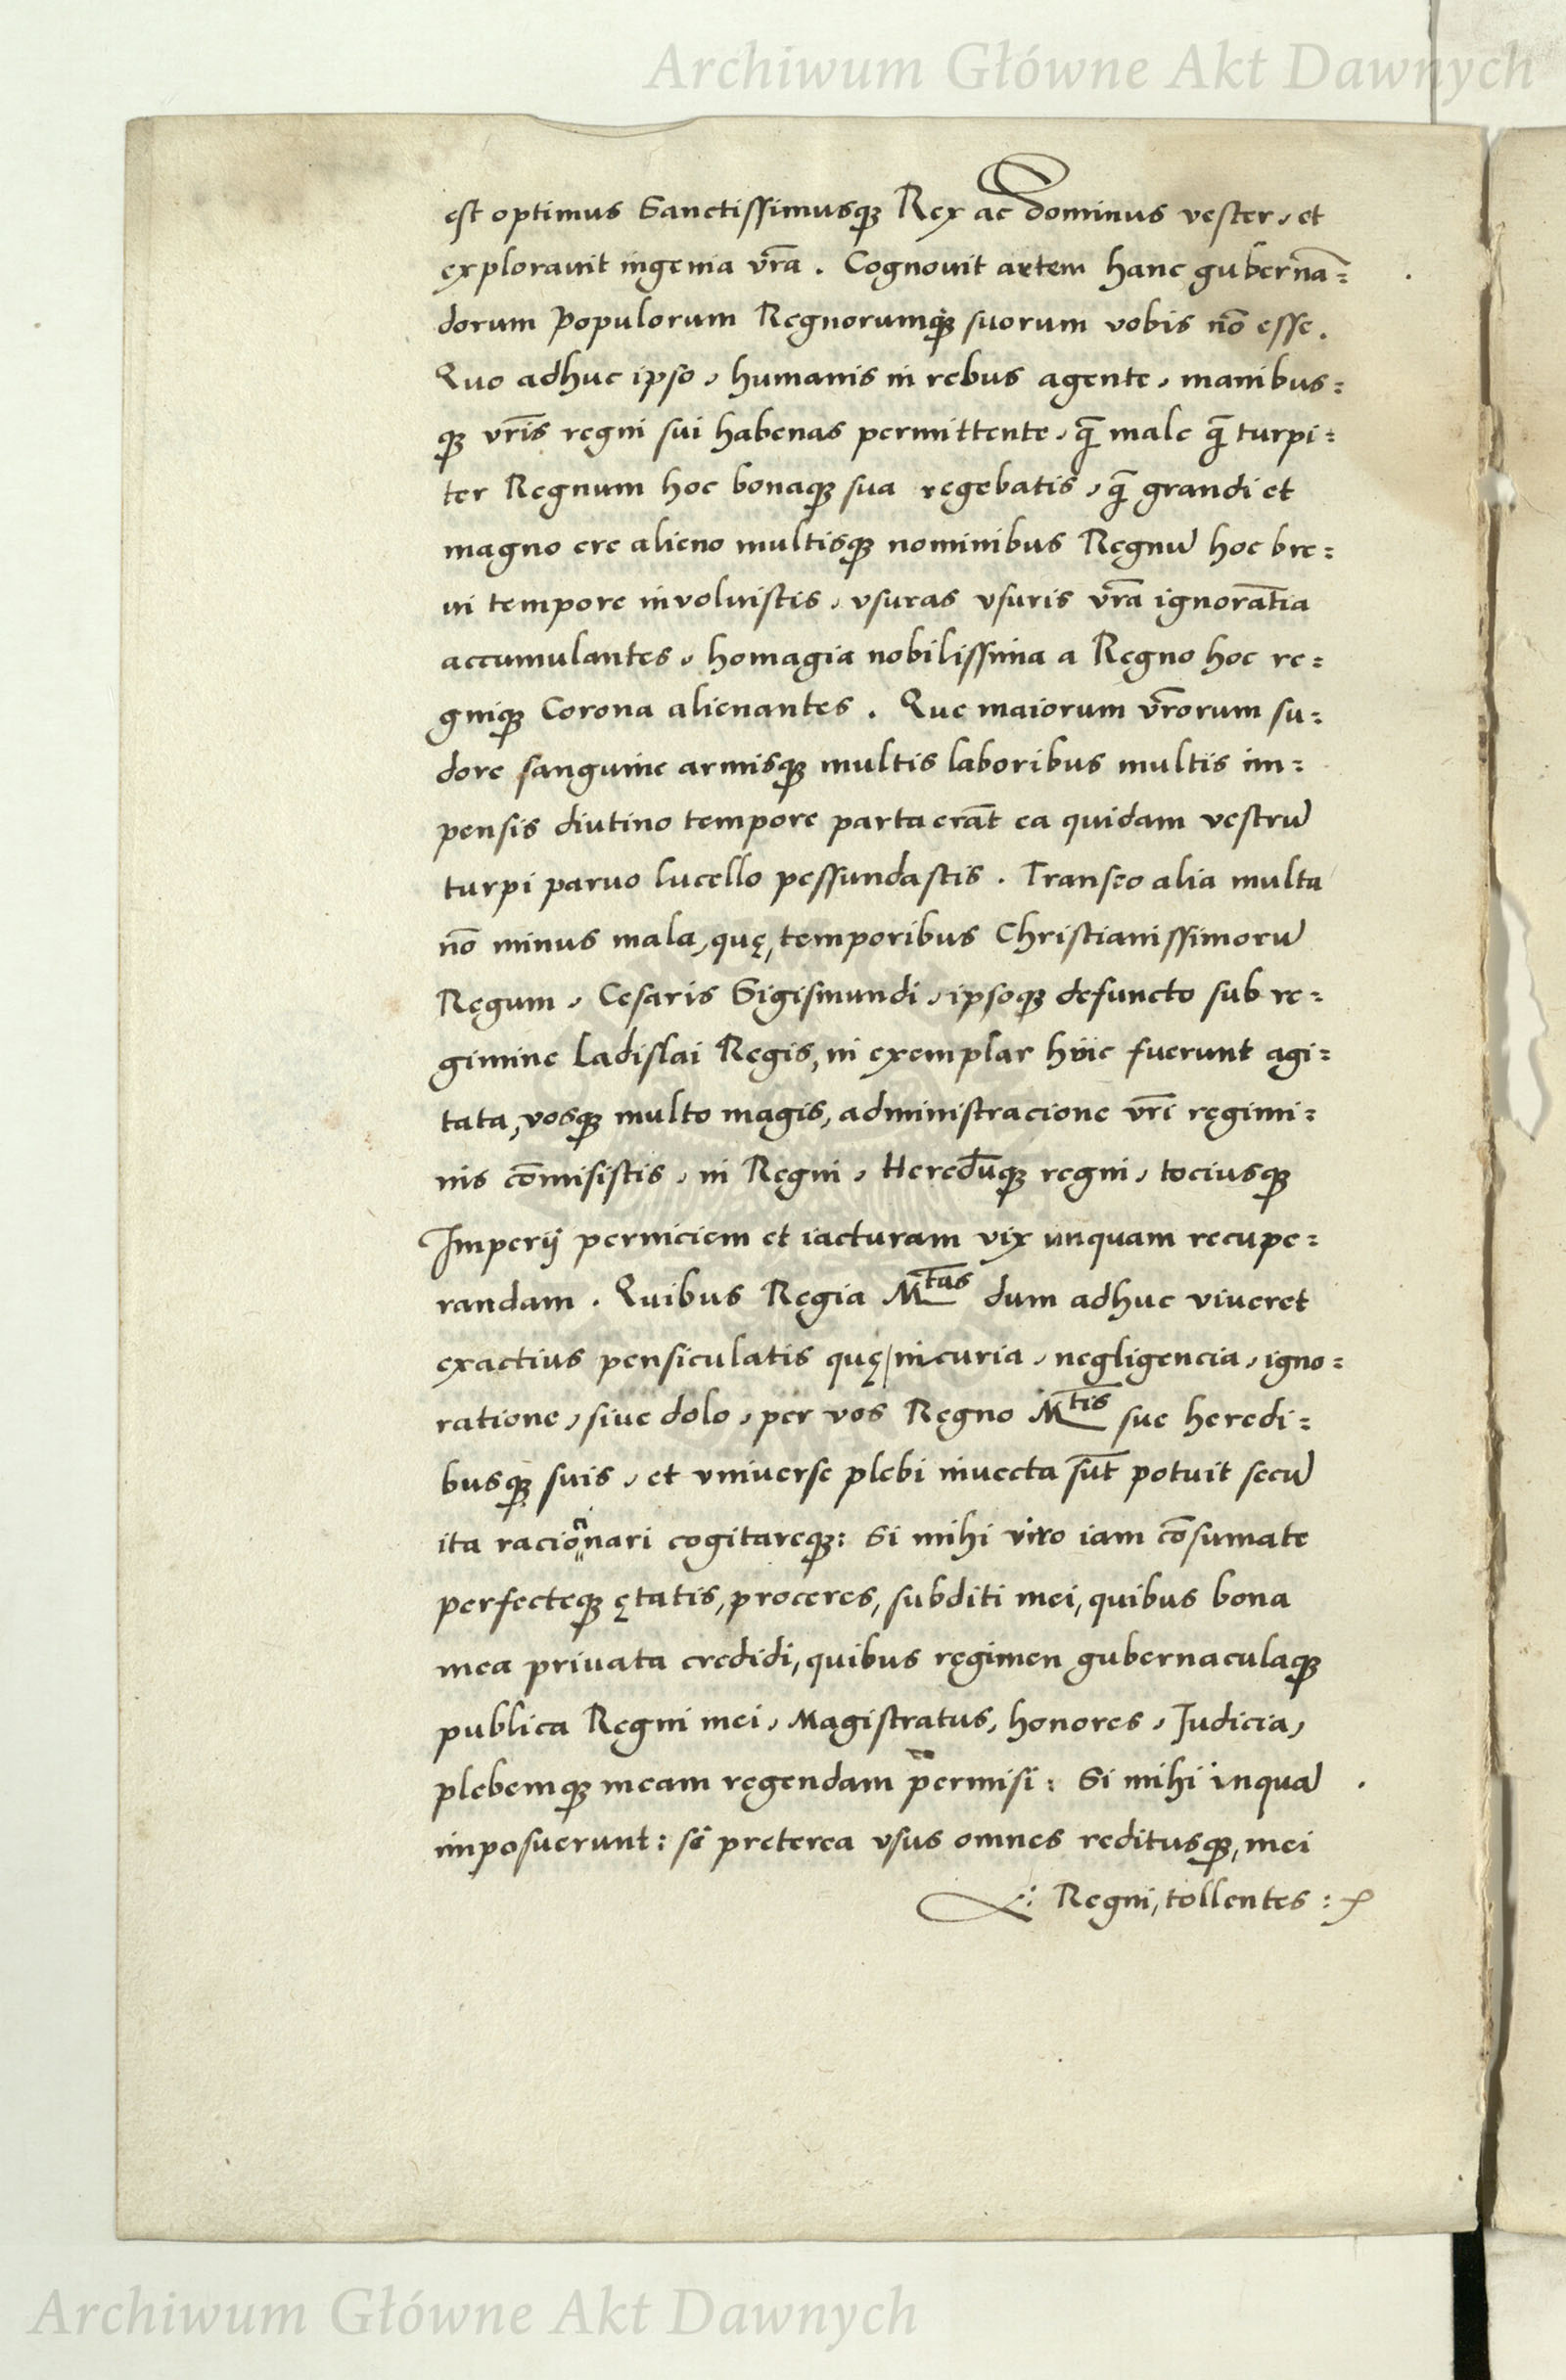 Archiwum Główne Akt Dawnych
est optimus Sanctissimusqꝫ Rex ac dominus vester, et
explorauit ingenia vr̄a. Cognouit artem hanc gubernā=
dorum Populorum Regnorumqꝫ suorum vobis nō esse.
Quo adhuc ipso, humanis in rebus agente, manibus=
qꝫ vr̄is regni sui habenas permittente, q̄ȝ male q̄ȝ turpi=
ter Regnum hoc bonaqꝫ sua regebatis, q̄ȝ grandi et
magno ere alieno multisqꝫ nominibus Regnū hoc bre=
ui tempore inuoluistis, vsuras vsuris vr̄a ignorātia
accumulantes, homagia nobilissima a Regno hoc re=
gniqꝫ Corona alienantes. Que maiorum vr̄orum su=
dore sanguine armisqꝫ multis laboribus multis im=
pensis diutino tempore parta erāt ea quidam vestrū
turpi paruo lucello pessundastis. Transeo alia multa
nō minus mala, quę, temporibus Christianissimorū
Regum, Cesaris Sigismundi, ipsoqꝫ defuncto sub re=
gimine Ladislai Regis, in exemplar hūic fuerunt agi=
tata, vosqꝫ multo magis, administracione vr̄i regimi=
nis cōmisistis, in Regni, Heredūqꝫ regni, tociusqꝫ
Imperij perniciem et iacturam vix unquam recupe=
randam. Quibus Regia M^tas dum adhuc viueret
exactius pensiculatis quę incuria, negligencia, igno=
ratione, siue dolo, per vos Regno M^tis sue heredi=
busqꝫ suis, et vniuerse plebi inuecta sūt potuit secū
ita raciōnari cogitareqꝫ: Si mihi viro iam cōsumate
perfecteqꝫ ętatis, proceres, subditi mei, quibus bona
mea priuata credidi, quibus regimen gubernaculaqꝫ
publica Regni mei, Magistratus, honores, Judicia,
plebemqꝫ meam regendam permisi: Si mihi inquā
imposuerunt: sē preterea vsus omnes reditusqꝫ, mei
Regni, tollentes:
Archiwum Główne Akt Dawnych